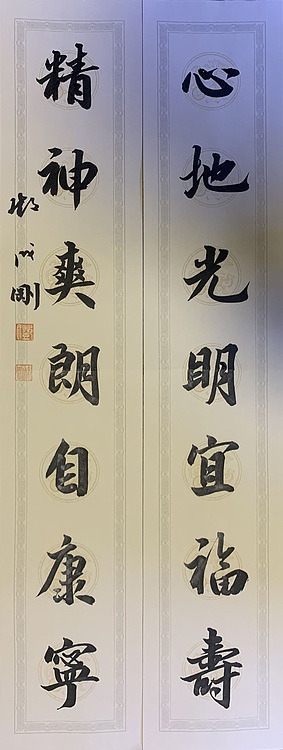 心地光明宜福壽
精神爽朗自康寧
成剛